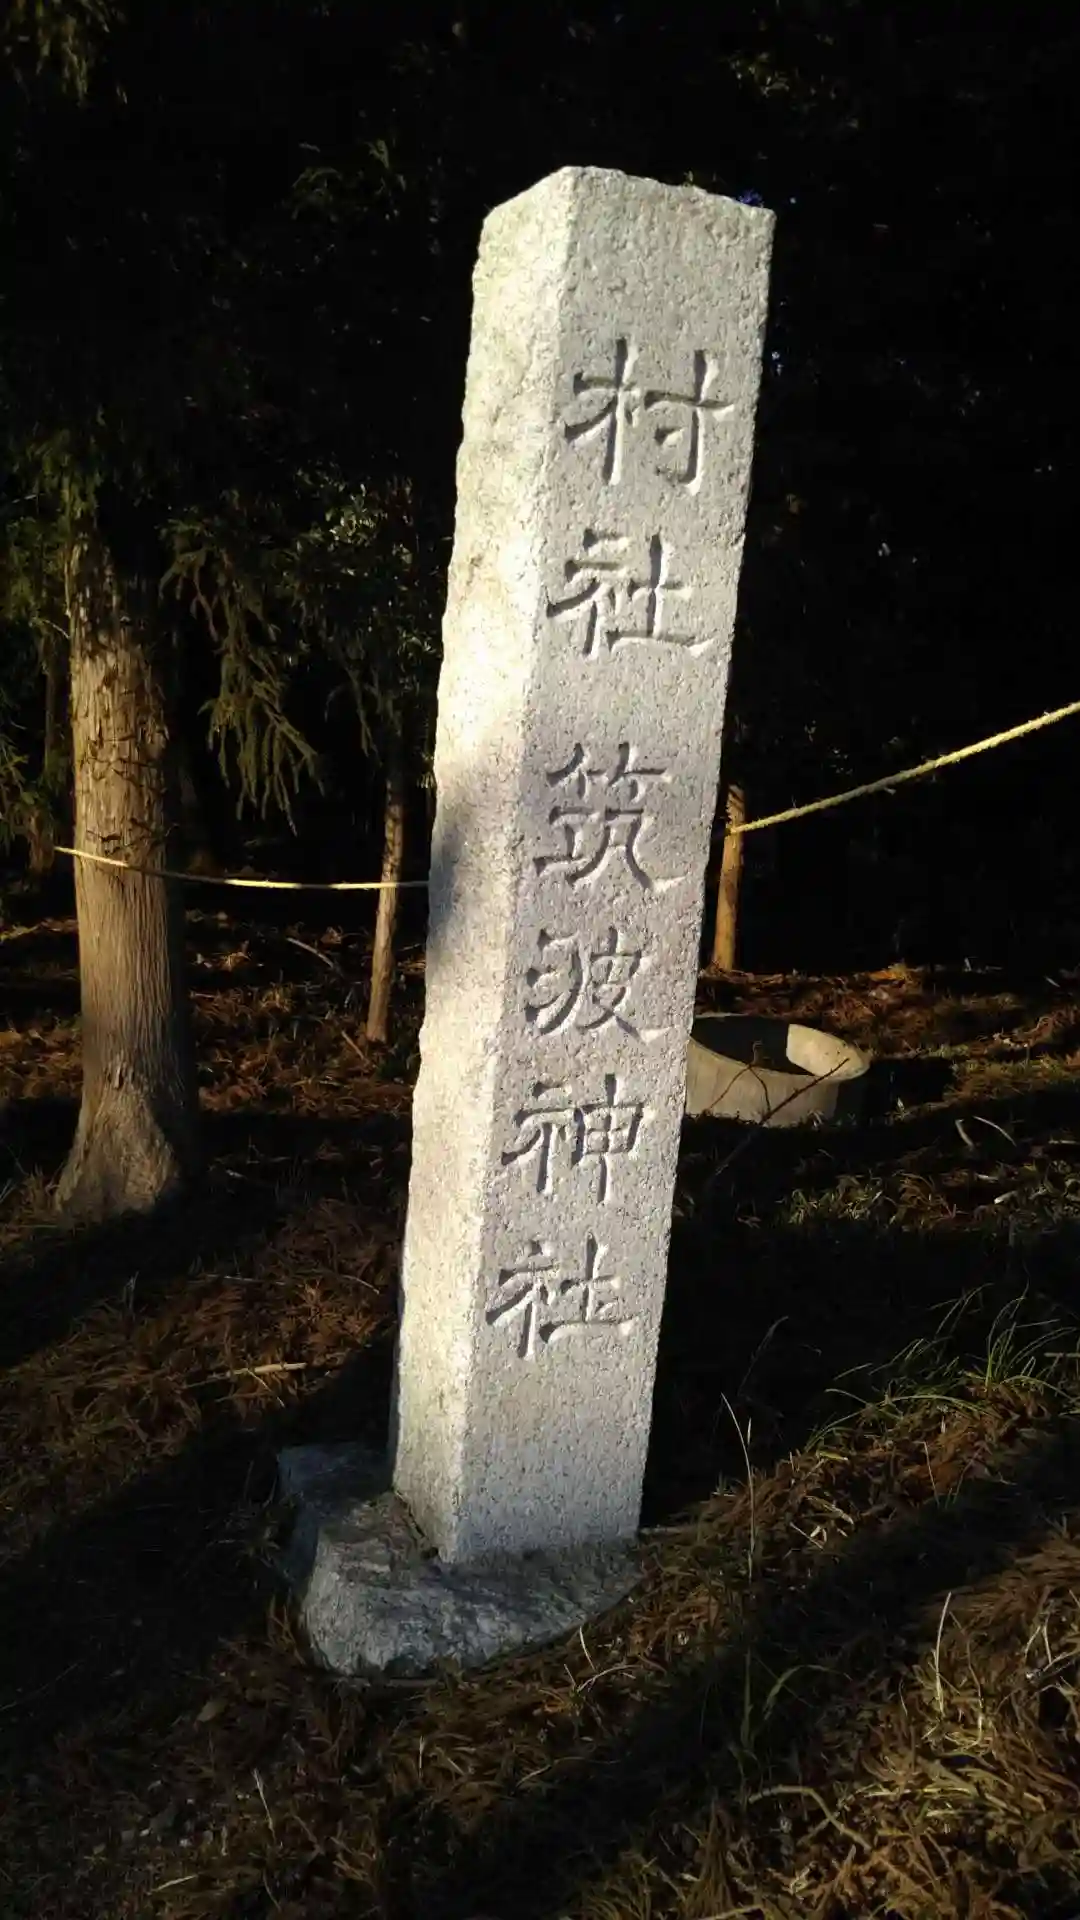 村社筑波神社